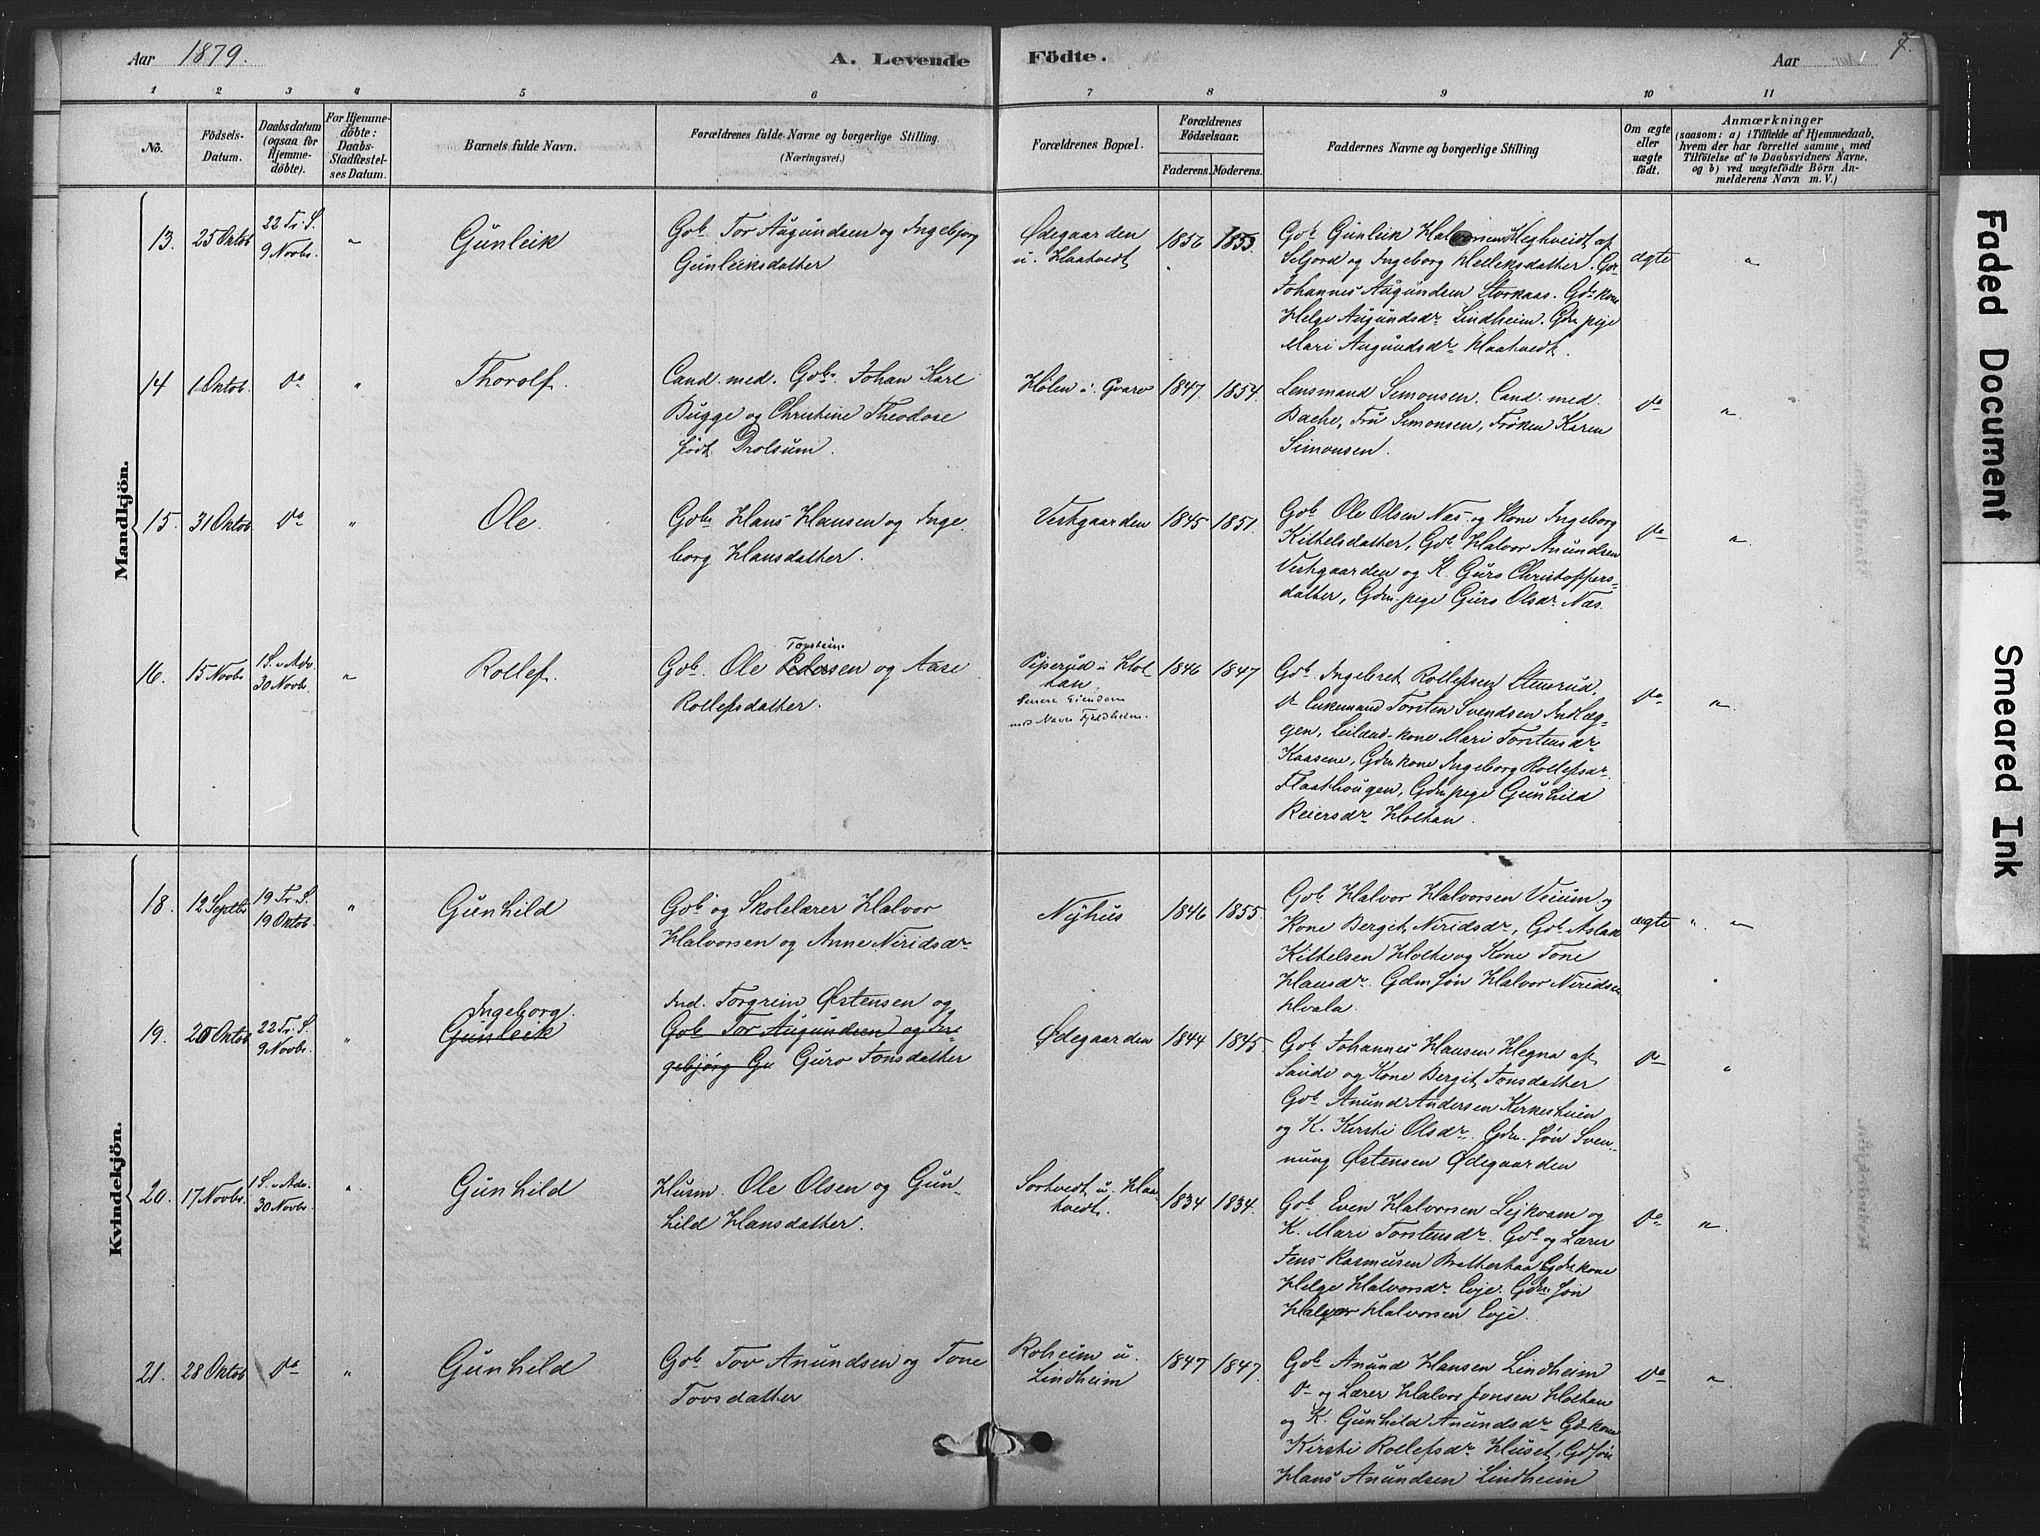 Aar 1879.
A. Levende Födte.
Aar
7.
1 2 3 4 5 6 7 8 9 10 11
No.
Födsels-
Datum.
Daabsdatum
(ogsaa for
Hjemme-
döbte).
For Hjemme-
döbte:
Daabs-
Stadfæstel-
ses Datum.
Barnets fulde Navn.
Forældrenes fulde Navne og borgerlige Stilling.
(Næringsvei.)
Forældrenes Bopæl.
Forældrenes
Födselsaar.
Faderens. Moderens.
Faddernes Navne og borgerlige Stilling
Om ægte
eller
uægte
födt.
Anmærkninger
(saasom: a) i Tilfælde af Hjemmedaab,
hvem der har forrettet samme, med
Tilföielse af to Daabsvidners Navne.
og b) ved uægtefödte Börn An-
melderens Navn m. V.)
Mandkjön.
13.
25 Oktob.
22 Tr. S.
9 Novbr.
"
Gunleik
Gbr. Tor Augundsen og Ingebjorg
Gunleiksdatter
Ødegaarden
u. Haatvedt
1856
1853.
Gbr. Gunleik Halvorsen Heghveidt af
Seljord og Ingeborg Helleksdatter. Gbr
Johannes Augundsen Storkaas. Gdm kone
Helge Augundsdr Lindheim. Gdm pige
Mari Augundsdr Haatvedt.
ægte
"
14
1 Oktob.
Do
"
Thorolf.
Cand. med. Gbr. Johan Karl
Bugge og Christine Theodose
født Drolsum.
Hølen i Gvarv
1847.
1854.
Lensmand Simonsen. Cand. med.
Bache, Fru Simonsen, Frøken Karen
Simonsen.
Do
"
15.
31 Oktob.
Do
"
Ole.
Gbr. Hans Hansen og Inge
borg Hansdatter.
Vestgaarden
1845
1851.
Gbr. Ole Olsen Næs og Kone Ingeborg
Kittelsdatter, Gbr. Halvor Anundsen
Vestgaarden og K. Guro Christoppers-
datter, Gdm. pige Guro Olsdr Næs.
Do
"
16.
15 Novbr.
1 S. i Adv.
30 Novbr.
"
Rollef.
Torstein
Gbr. Ole Pedersen og Aase
Rollefsdatter.
Piperud i Hol-
tan
Senere Eiendom
med Navn Fjeldheim.
1846
1847
Gbr. Ingebret Rollefsen Stensrud,
Do Enkemand Torsten Svendsen Indlæg-
gen, Leilænd. kone Mari Torstensdr
Kaasene, Gdm kone Ingeborg Rollefsdr.
Flaathougen, Gdm pige Gunhild
Reiersdr Holtan.
Do
"
Kvindekjön.
18.
12 Septbr
19 Tr. S.
19 Oktob.
"
Gunhild
Gbr. og Skolelærer Halvor
Halvorsen og Anne Niridsdr
Nyhus
1846
1855.
Gbr. Halvor Halvorsen Veium og
Kone Bergit Niridsdr, Gbr. Aslak
Kittelsen Holte og Kone Tone
Hansdr. Gdm søn Halvor Niridsen
Hvala
ægte
"
"
19.
20 Oktob
22 Tr. S.
9 Novbr.
"
Ingeborg.
Gunleik
Ind. Torgrim Østensen og
Gbr. Tor Augundsen og In-
gebjorg Gu Guro Jonsdatter
Ødegaarden
1844
1845.
Gbr. Johannes Hansen Hegna af
Saude og Kone Bergit Jonsdatter
Gbr. Anund Andersen Kirkeshuien
og K. Kirsti Olsdr. Gdm. søn Sven-
nung Østensen Ødegaarden
Do
"
20.
17 Novbr.
1 S. i Adv.
30 Novbr.
"
Gunhild
Husm. Ole Olsen og Gun-
hild Hansdatter.
Sortvedt u. Haa-
tvedt.
1834
1834.
Gbr. Even Halvorsen Lejkvam og
K. Mari Torstensdr. Gbr. og Lærer
Jens Rasmusen Bratterhaa Gdm kone
Helge Halvorsdr Evje. Gdm. søn
Halvor Halvorsen Evje.
Do
"
21.
28 Oktob
Do
"
Gunhild
Gbr. Tov Anundsen og Tone
Tovsdatter
Roheim u.
Lindheim
1847
1847.
Gbr. Anund Hansen Lindheim
Do og Lærer Halvor Jonsen Holtan
og K. Gunhild Anundsdr Gd kone
Kirsti Rollefsdr Huset, Gd søn
Hans Anundsen Lindheim
Do
"
Faded Document
Smeared Ink